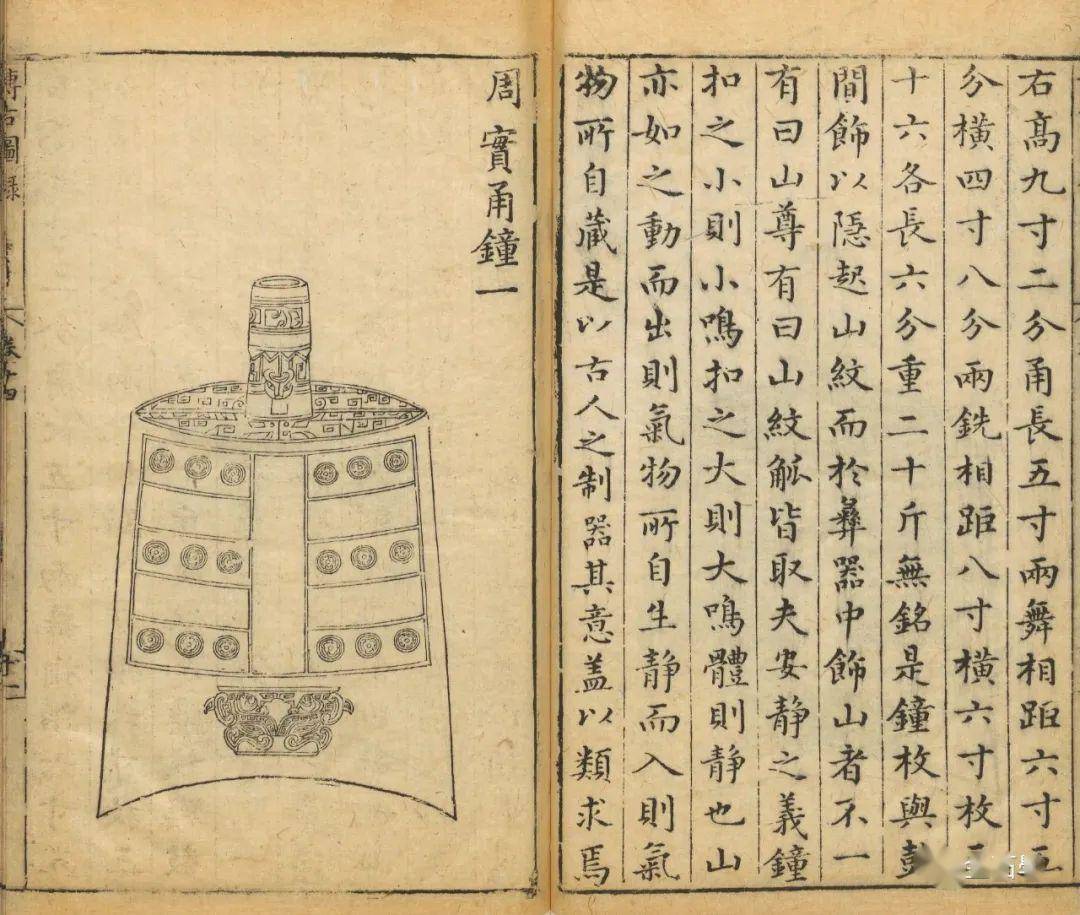 右高九寸二分甬長五寸兩舞相距六寸五
分橫四寸八分兩銑相距八寸橫六寸枚三
十六各長六分重二十斤無銘是鐘枚與鼓
間飾以隠起山紋而於彝器中飾山者不一
有曰山尊有曰山紋觚皆取夫安靜之義鐘
扣之小則小鳴扣之大則大鳴體則靜也山
亦如之動而出則氣物所自生靜而入則氣
物所自藏是以古人之制器其意盖以類求焉
周實甬鐘一
博古圖録